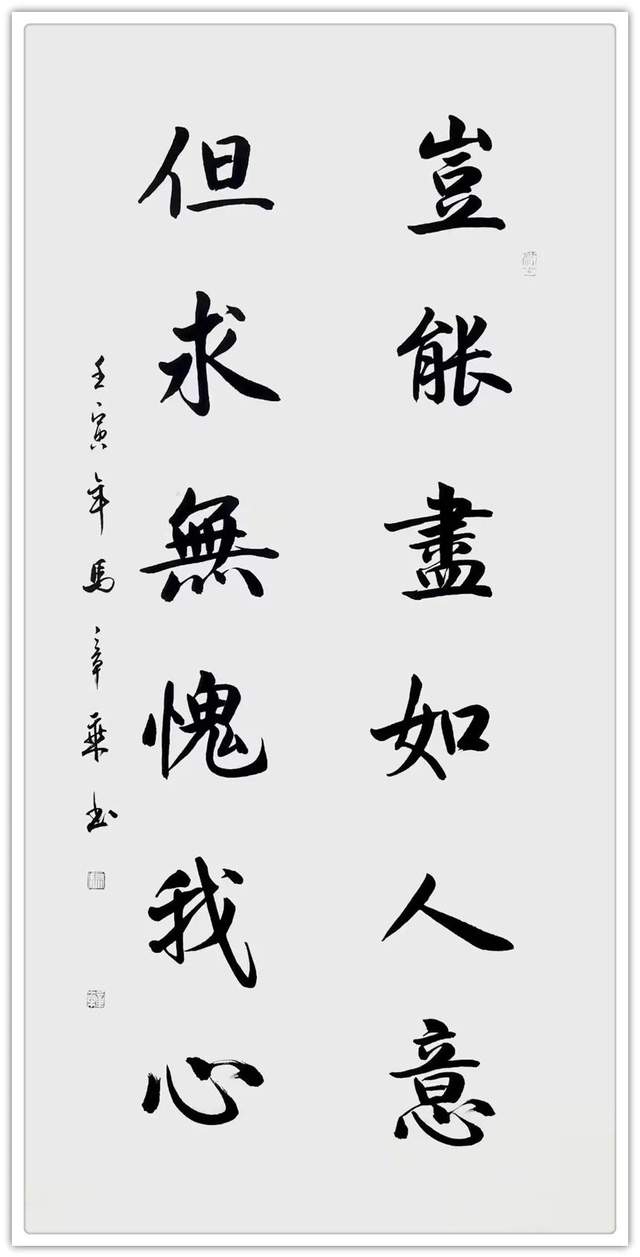 豈能盡如人意
但求無愧我心
壬寅年馬章乘书